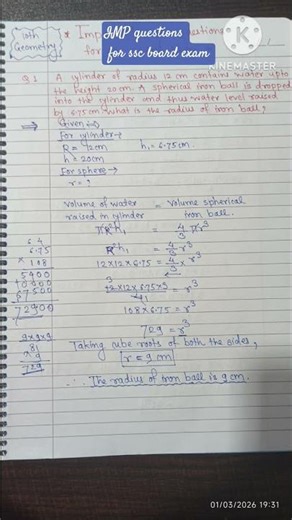 IMP questions
for ssc board exam
KINEMASTER
10th
Geometry
Q.1 A cylinder of radius 12 cm contains water upto
the height 20 cm. A spherical iron ball is dropped
into the cylinder and thus water level raised
by 6.75 cm. what is the radius of iron ball,
⇒ Given:-
For cylinder→
R = 12cm h₁ = 6.75 cm.
h = 20cm
For sphere→
r = ?
Volume of water = Volume spherical
raised in cylinder iron ball.
πR²h₁ = 4/3 πr³
R²h₁ = 4/3 r³
12×12×6.75 = 4/3 × r³
12×12×6.75×3/4 = r³
108×6.75 = r³
729 = r³
Taking cube roots of both the sides,
r = 9 cm
∴ The radius of iron ball is 9 cm.
6 4
6.75
× 108
5400
72900
9×9×9
81
× 9
729
01/03/2026 19:31